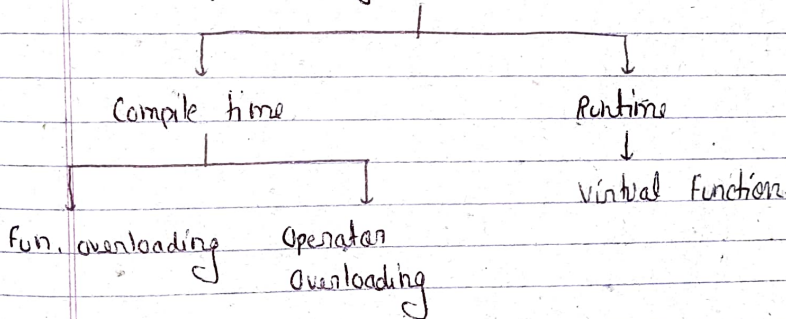 Compile time
Runtime
Virtual Function
fun. overloading
Operator
Overloading